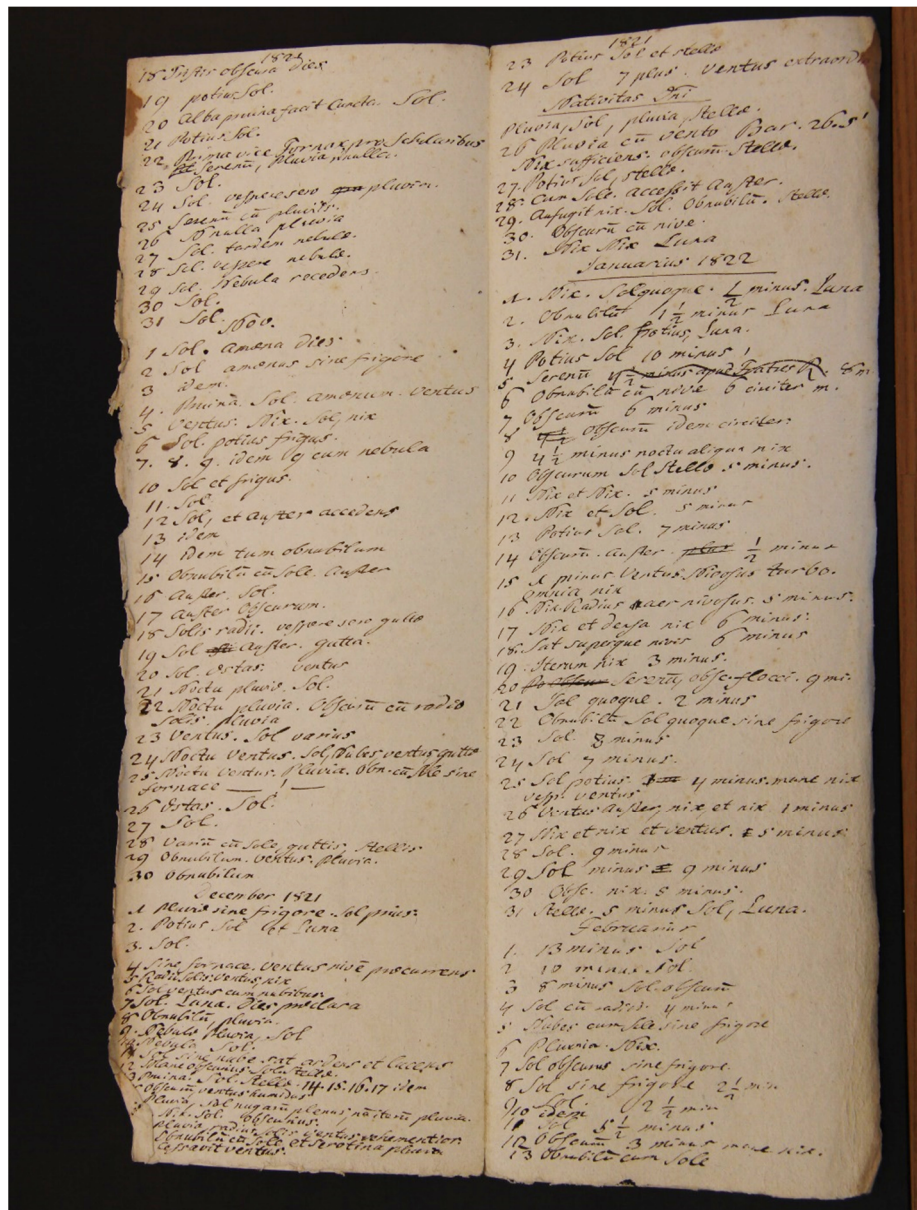 1821
18 obscura dies
19 potius Sol.
20 Alba pruina facit cuncta. Sol.
21 Potius Sol.
22 Prima vice Fornax pro Scholaribus
et Serenū, pluvia nulla.
23 Sol.
24 Sol. vespere sero pluvia.
25 Serenū cū pluviis.
26 Nulla pluvia
27 Sol. tandem nebulæ.
28 Sol. vespere nebulæ.
29 Sol. Nebula recedens.
30 Sol.
31 Sol.
Nov.
1 Sol. amœna dies
2 Sol amœnus sine frigore
3 idem.
4. Pruina. Sol. amœnum. ventus
5 Ventus. Nix. Sol, nix
6 Sol. potius frigus.
7. 8. 9. idem 9 cum nebula
10 Sol et frigus.
11. Sol
12 Sol, et Auster accedens
13 idem
14 idem tum obnubilum
15 Obnubilū cū Sole. Auster
16 Auster. Sol.
17 Auster Obscurum.
18 Solis radii. vespere sero guttæ
19 Sol Auster. gutta.
20 Sol. Æstas. ventus
21 Noctu pluvia. Sol.
22 Noctu pluvia. Obscurū cū radio
Solis. pluvia
23 Ventus. Sol varius
24 Noctu Ventus. Sol, Nubes ventus guttæ
25 Noctu Ventus. Pluvia. Obn. cū Sole sine
fornace
26 Æstas. Sol.
27 Sol.
28 Variū cū Sole, guttis, stellis
29 Obnubilum. Ventus. Pluvia.
30 Obnubilum
December 1821
1 Pluvia sine frigore. Sol prius.
2. Potius Sol et Luna
3. Sol.
4 Sine fornace. Ventus nivē præcurrens
5 Radii Solis. Ventus nix
6 Sol ventus cum nubibus
7 Sol. Luna. Dies præclara
8 Obnubilū, pluvia.
9. Nebula pluvia, Sol
Nebula Sol.
11 Sol sine nube sat ardens et lucens
12 Mane obscurius Sol Stellæ.
13 Pruina. Sol. Stellæ. 14. 15. 16. 17 idem
Obscurū ventus humidus
Pluvia, Sol nugarū plenus, noctem pluvia.
Nix. Sol. Obscurius.
Pluvia radius Solis ventus vehementior
Obnubilū cū Sole et serotina pluvia
Cessavit ventus.
1821
23 Potius Sol et stellæ
24 Sol 7 plus. Ventus extraord
Nativitas Dni
Pluvia, Sol, pluvia, Stellæ.
26 Pluvia cū vento Bar. 26.5'
Nix sufficiens. obscurū. Stellæ.
27. Potius Sol, stellæ.
28. Cum Sole. accessit Auster.
29. Aufugit nix. Sol. Obnubilū. Stellæ.
30. Obscurū cū nive.
31. Nix Nix Luna
Januarius 1822
1. Nix. Sol quoque. 1/2 minus. Luna
2. Obnubilū 1 1/2 minus Luna
3. Nix. Sol potius, Luna.
4 Potius Sol 10 minus
5 Serenū
6 Obnubilū cū nive 6 circiter m.
7 Obscurū 6 minus
8 Obscurū idem circiter.
9 4 1/2 minus noctu aliqua nix
10 Obscurum Sol Stellæ 5 minus.
11 Nix et Nix. 5 minus
12. Nix et Sol. 5 minus
13 Potius Sol. 7 minus
14 Obscurū. Auster. plus 1/2 minus
15 1 minus Ventus. Nivosus turbo.
omnia nix
16 Nix Radius aer nivosus. 5 minus.
17 Nix et densa nix 6 minus.
18. Sat superque nivis 6 minus
19. Iterum nix 3 minus.
20 Serenū, obsc. flocci. 9 mi.
21 Sol quoque. 2 minus
22 Obnubilū Sol quoque sine frigore
23 Sol 8 minus
24 Sol 7 minus.
25 Sol potius. 4 minus. mane nix
vesp. ventus
26 Ventus Auster, nix et nix 1 minus
27 Nix et nix et ventus. 5 minus.
28 Sol. 9 minus
29 Sol minus 9 minus
30 Obsc. nix. 5 minus.
31 Stellæ. 5 minus Sol, Luna.
Februarius
1. 13 minus Sol
2 10 minus Sol.
3 8 minus Sol. obscurū
4 Sol cū radiis 4 minus
5 Nubes cum Sole sine frigore
6 Pluvia. Nix.
7 Sol obscurus sine frigore.
8 Sol sine frigore 2 1/2 min
9 Sol.
10 idem 2 1/2 min
11 Sol 5 1/2 minus
12 Obscurū 3 minus mane nix.
13 Obnubilū cum Sole